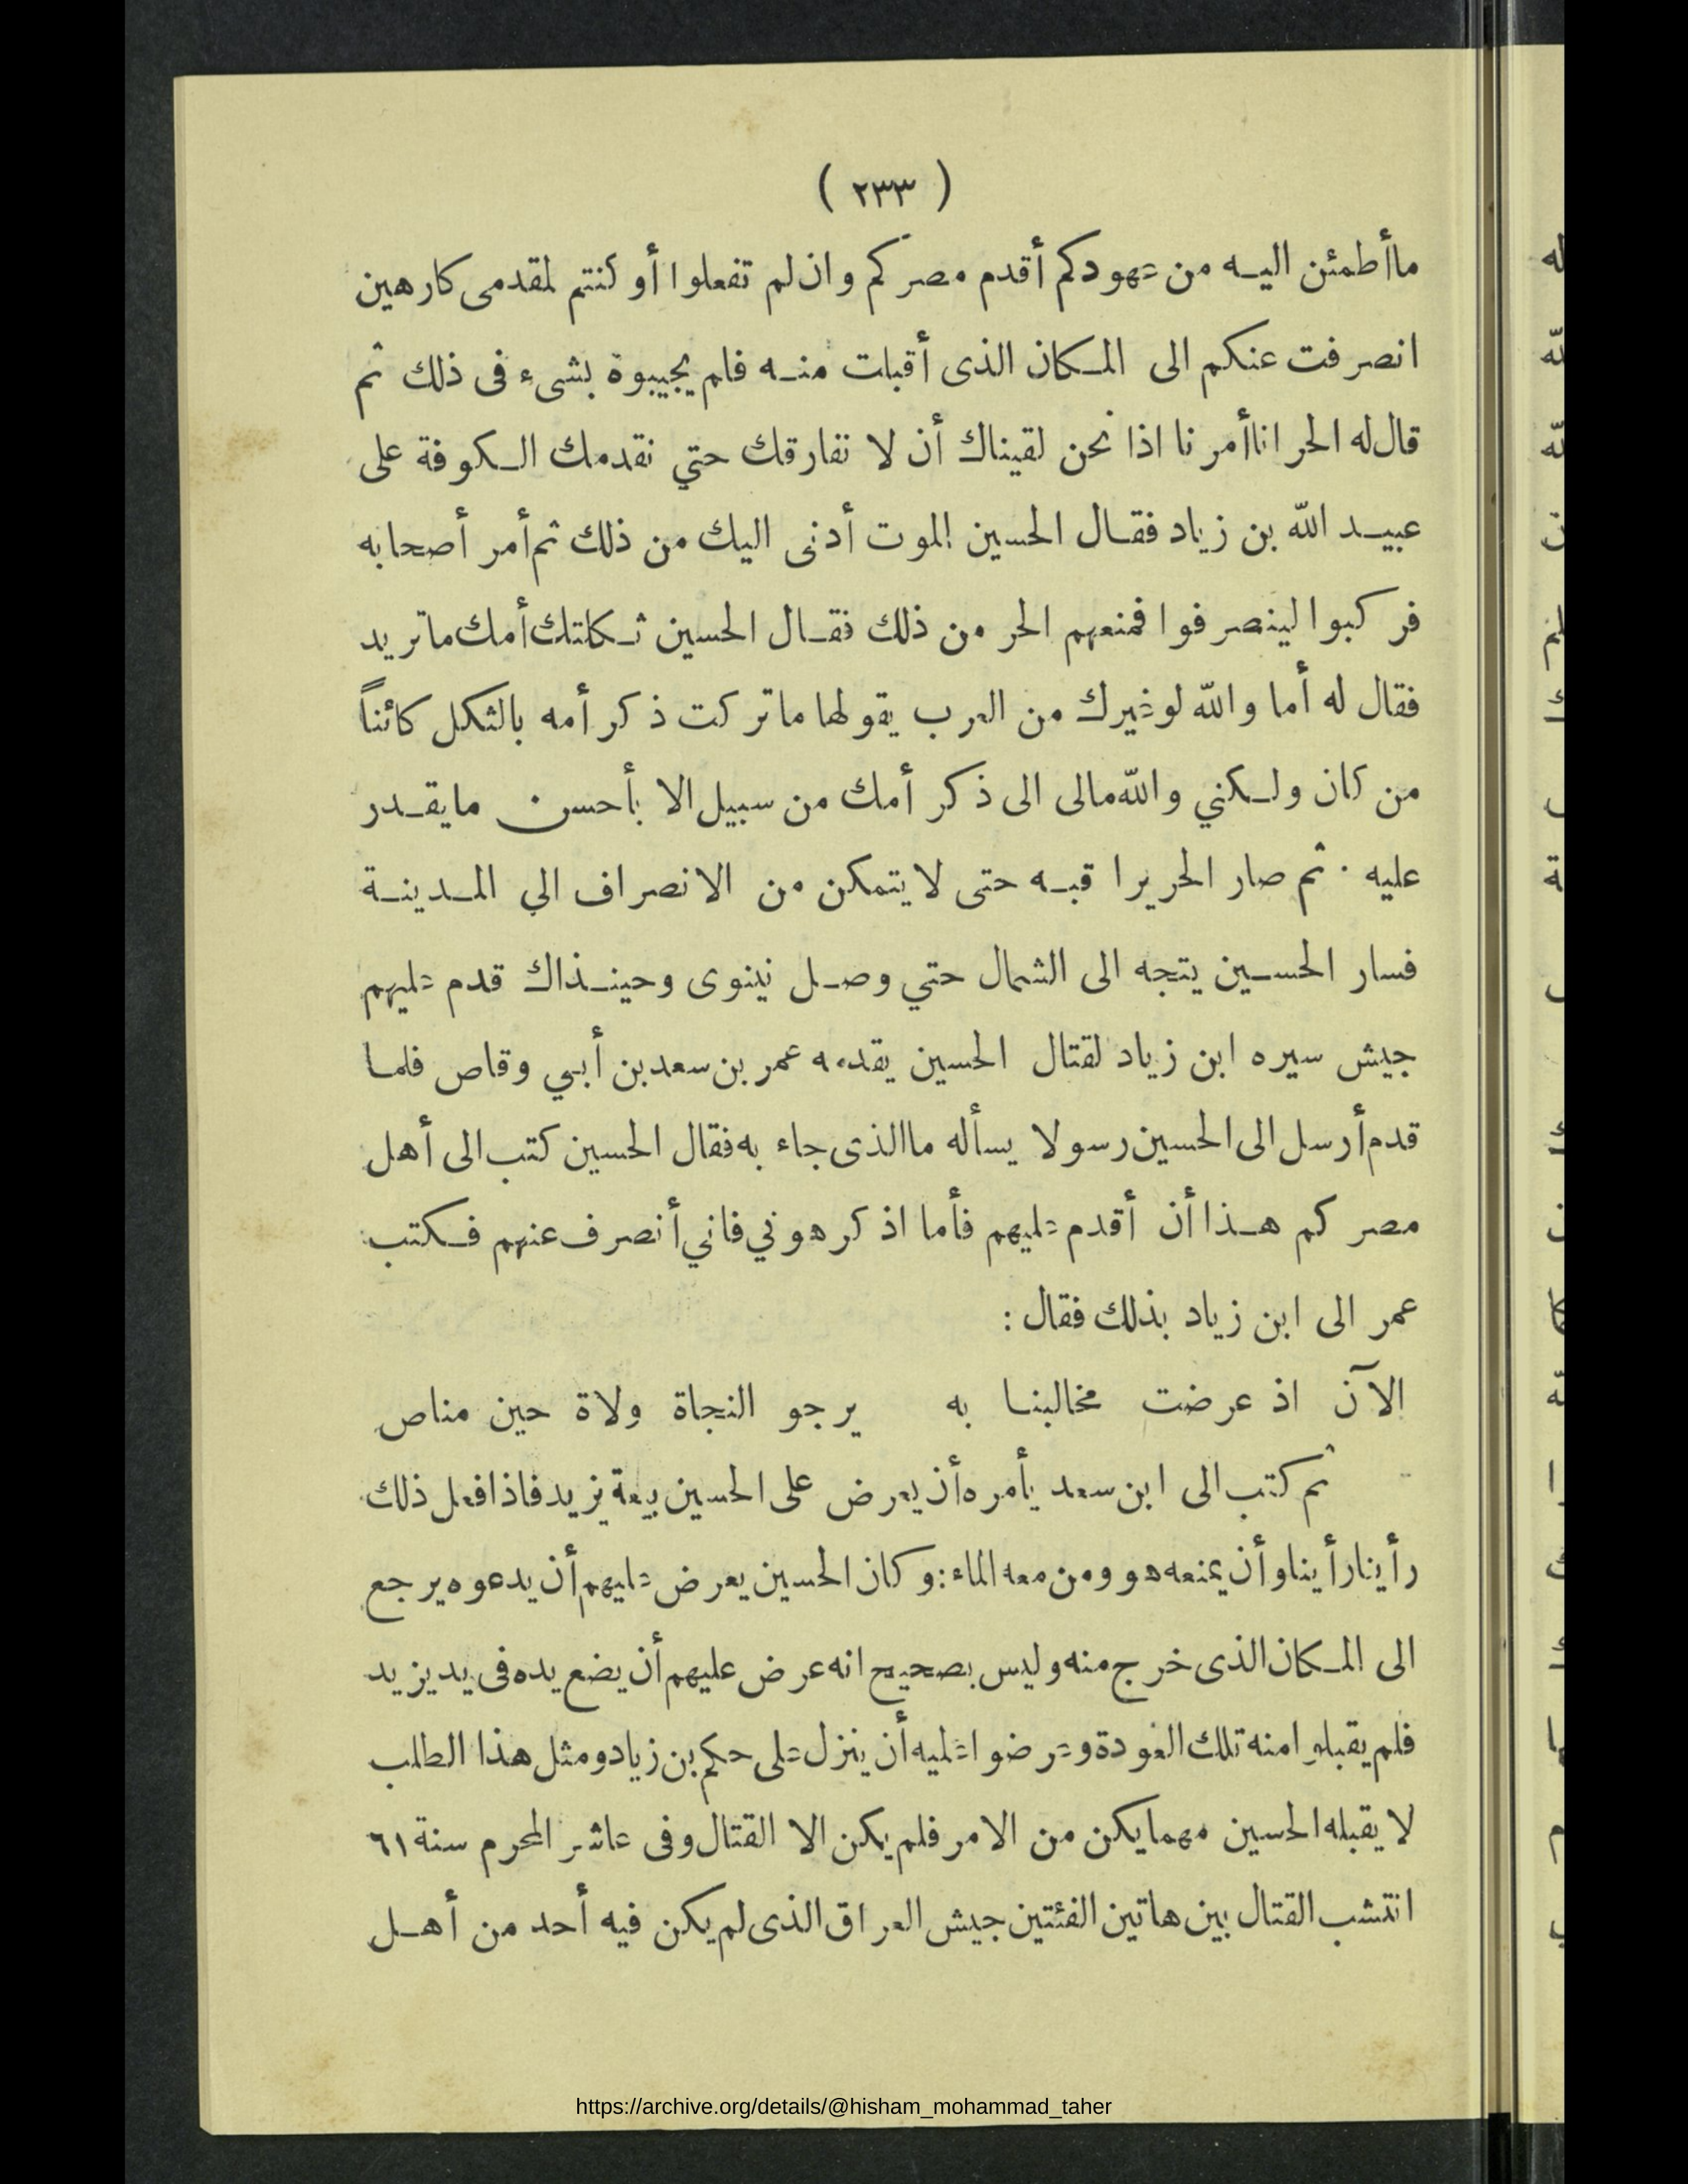 ( ٢٣٣ )
ما أطمئن اليه من عهودكم أقدم مصركم وان لم تفعلوا أو كنتم لمقدمى كارهين
انصرفت عنكم الى المكان الذى أقبلت منه فلم يجيبوة بشىء فى ذلك ثم
قال له الحر انا أمرنا اذا نحن لقيناك أن لا نفارقك حتي نقدمك الكوفة على
عبيد الله بن زياد فقال الحسين الموت أدنى اليك من ذلك ثم أمر أصحابه
فركبوا لينصرفوا فمنعهم الحر من ذلك فقال الحسين ثكلتك أمك ما تريد
فقال له أما والله لو غيرك من العرب يقولها ما تركت ذكر أمه بالثكل كائناً
من كان ولكني والله مالى الى ذكر أمك من سبيل الا بأحسن ما يقدر
عليه . ثم صار الحر يراقبه حتى لا يتمكن من الانصراف الي المدينة
فسار الحسين يتجه الى الشمال حتي وصل نينوى وحينذاك قدم عليهم
جيش سيره ابن زياد لقتال الحسين يقدمه عمر بن سعد بن أبي وقاص فلما
قدم أرسل الى الحسين رسولا يسأله ما الذى جاء به فقال الحسين كتب الى أهل
مصركم هذا أن أقدم عليهم فأما اذ كرهوني فاني أنصرف عنهم فكتب
عمر الى ابن زياد بذلك فقال :
الآن اذ عرضت مخالبنا به يرجو النجاة ولاة حين مناص
ثم كتب الى ابن سعد يأمره أن يعرض على الحسين بيعة يزيد فاذا فعل ذلك
رأينا رأينا وأن يمنعه هو ومن معه الماء : وكان الحسين يعرض عليهم أن يدعوه يرجع
الى المكان الذى خرج منه وليس بصحيح انه عرض عليهم أن يضع يده فى يد يزيد
فلم يقبلوا منه تلك العودة وعرضوا عليه أن ينزل على حكم بن زياد ومثل هذا الطلب
لا يقبله الحسين مهما يكن من الامر فلم يكن الا القتال وفى عاشر المحرم سنة ٦١
انتشب القتال بين هاتين الفئتين جيش العراق الذى لم يكن فيه أحد من أهل
https://archive.org/details/@hisham_mohammad_taher